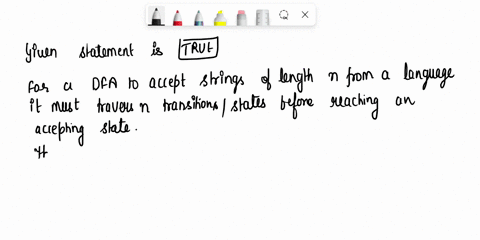 Given statement is TRUE
For a DFA to accept strings of length n from a language
it must travers n transitions/states before reaching an
accepting state.
H